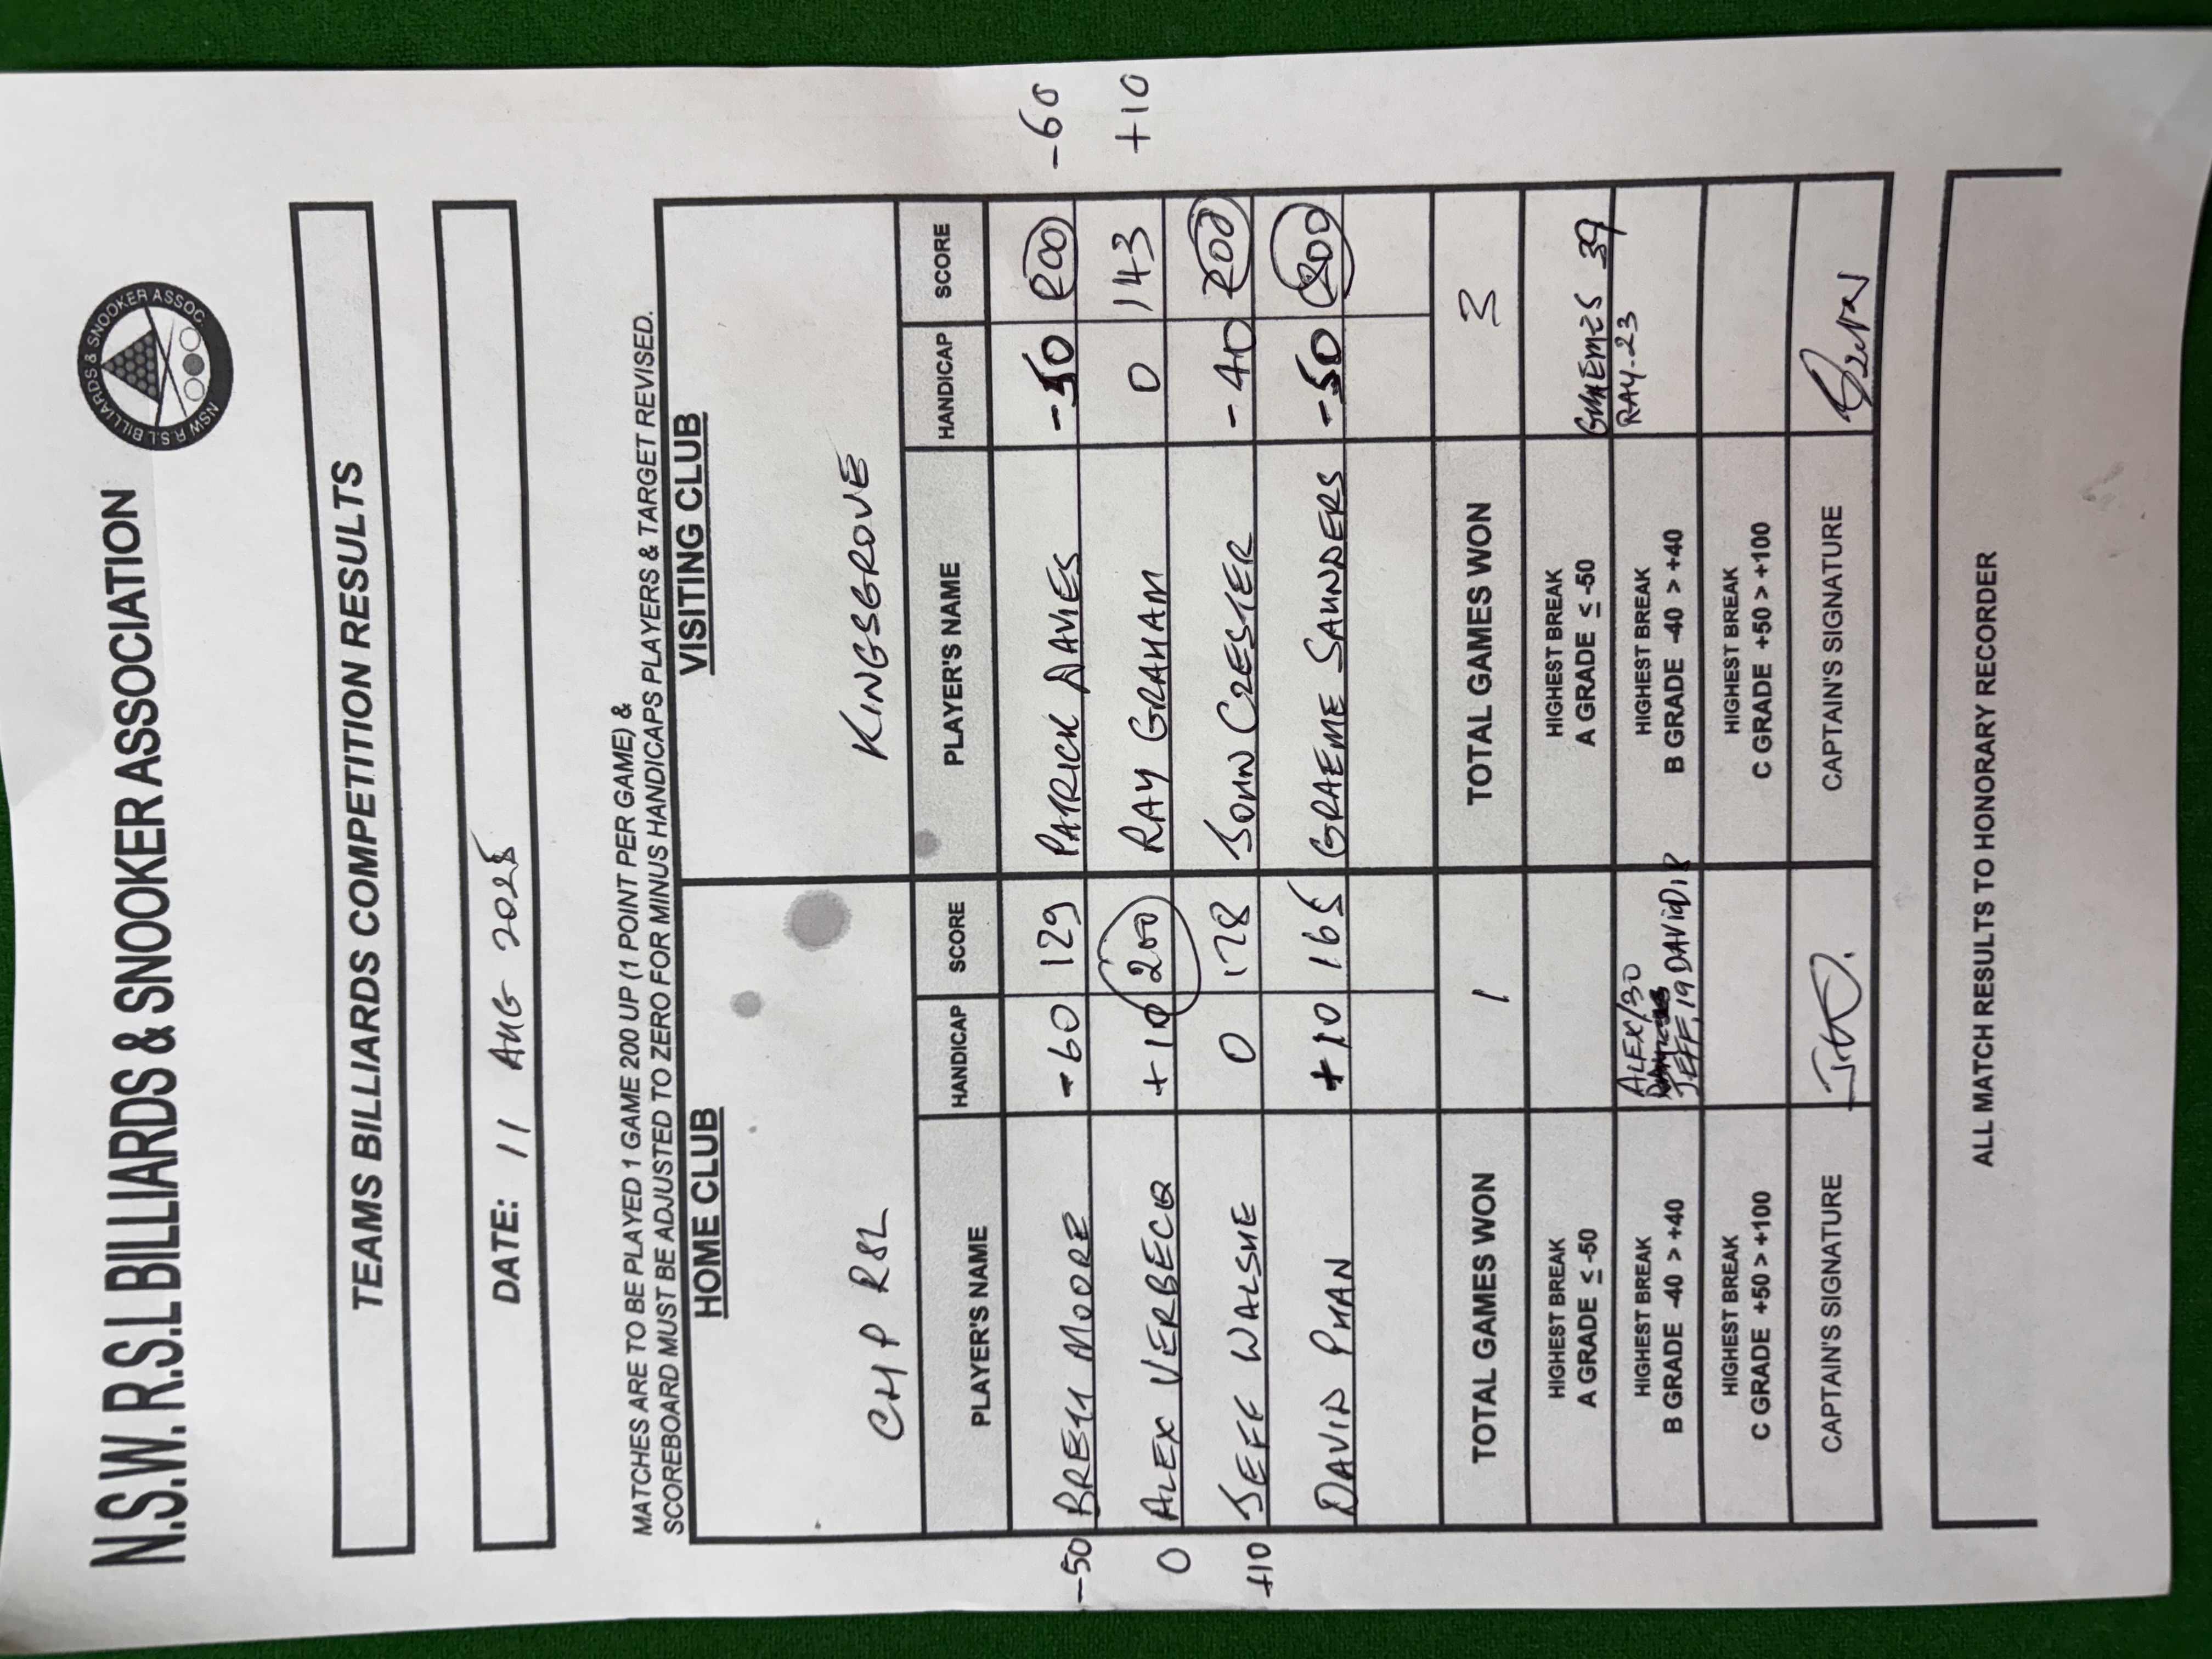 N.S.W. R.S.L BILLIARDS & SNOOKER ASSOCIATION
NSW R.S.L BILLIARDS & SNOOKER ASSOC.
TEAMS BILLIARDS COMPETITION RESULTS
DATE: 11 AUG 2025
MATCHES ARE TO BE PLAYED 1 GAME 200 UP (1 POINT PER GAME) &
SCOREBOARD MUST BE ADJUSTED TO ZERO FOR MINUS HANDICAPS PLAYERS & TARGET REVISED.
HOME CLUB VISITING CLUB
CHP RSL KINGSGROVE
PLAYER'S NAME HANDICAP SCORE PLAYER'S NAME HANDICAP SCORE
-50 BRETT MOORE -60 129 PATRICK DAVIES -50 200 -60
0 ALEX VERBECQ +10 200 RAY GRAHAM 0 143 +10
+10 JEFF WALSHE 0 178 JOHN CRESTER -40 200
DAVID PHAN +10 165 GRAEME SAUNDERS -50 200
TOTAL GAMES WON 1 TOTAL GAMES WON 3
HIGHEST BREAK
A GRADE ≤ -50
HIGHEST BREAK
A GRADE ≤ -50 GRAEMES 39
HIGHEST BREAK
B GRADE -40 > +40
ALEX/30
JEFF, 19 DAVID 18
HIGHEST BREAK
B GRADE -40 > +40
RAY-23
HIGHEST BREAK
C GRADE +50 > +100
HIGHEST BREAK
C GRADE +50 > +100
CAPTAIN'S SIGNATURE CAPTAIN'S SIGNATURE
ALL MATCH RESULTS TO HONORARY RECORDER